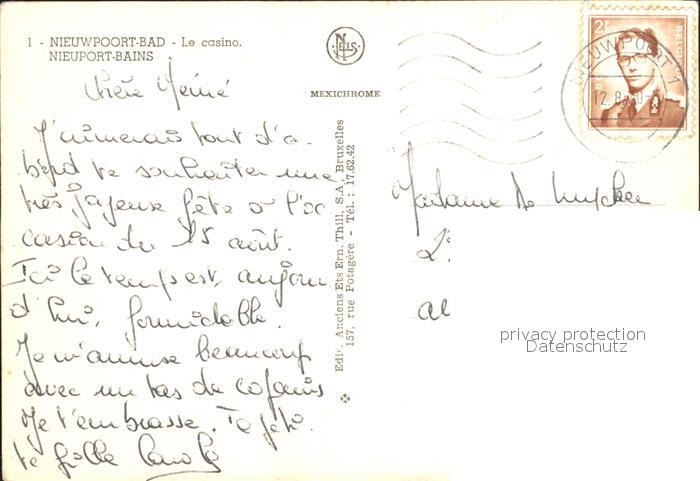 1 - NIEUWPOORT-BAD - Le casino.
NIEUPORT-BAINS
NELS
MEXICHROME
2F
BELGIË
NIEUWPOORT 1
12.8
Chère
J'aimerais tout d'a-
bord te souhaiter une
très joyeuse fête à l'oc
casion du 15 août.
Ici le temps est, aujour
d'hui, formidable.
Je m'amuse beaucoup
avec un tas de copains
Je t'embrasse. Ta peti-
te fille
Edit. Anciens Ets Ern. Thill, S.A., Bruxelles
157, rue Potagère - Tél.: 17.62.42
Madame De
privacy protection
Datenschutz